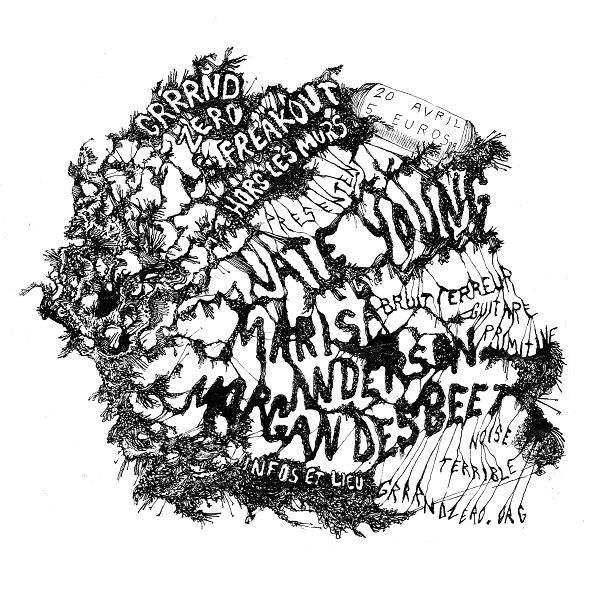 GRRRND
ZERO
FREAKOUT
HORS LES MURS
20 AVRIL
5 EUROS
PRESENTENT
NATE YOUNG
BRUIT TERREUR
MARISA
ANDERSON
GUITARE
PRIMITIVE
MORGAN DESBEET
NOISE
TERRIBLE
INFOS ET LIEU
GRRRNDZERO.ORG